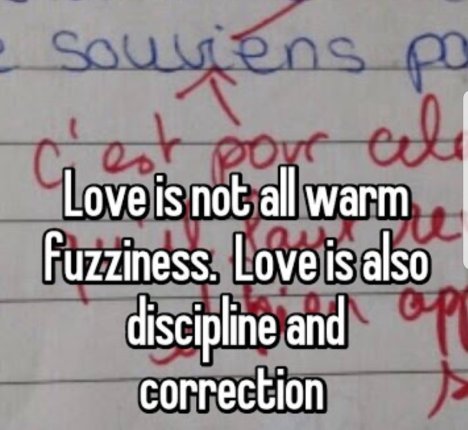 souviens
c'est pour
Love is not all warm
fuzziness. Love is also
discipline and
correction